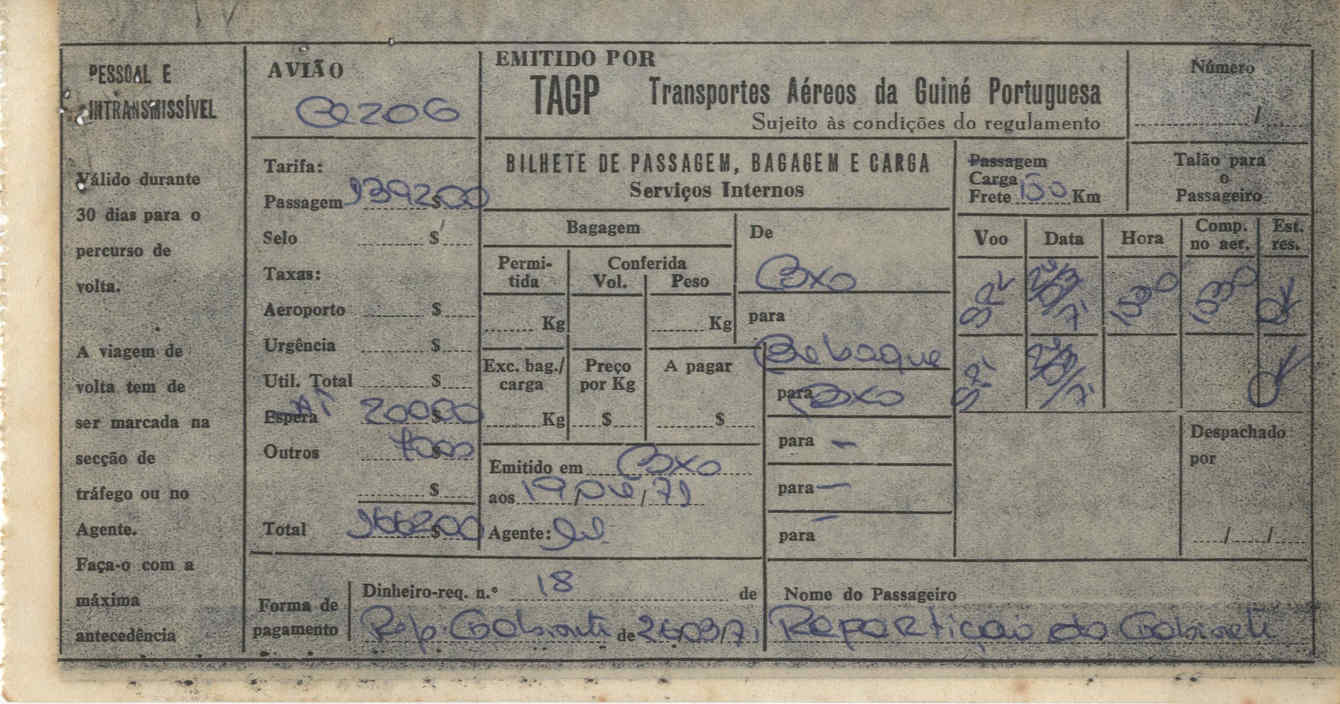 PESSOAL E
INTRANSMISSÍVEL
Válido durante
30 dias para o
percurso de
volta.
A viagem de
volta tem de
ser marcada na
secção de
tráfego ou no
Agente.
Faça-o com a
máxima
antecedência
AVIÃO
Tarifa:
Passagem $
Selo $
Taxas:
Aeroporto $
Urgência $
Util. Total $
Espera $
Outros $
$
Total $
EMITIDO POR
TAGP Transportes Aéreos da Guiné Portuguesa
Sujeito às condições do regulamento
Número
/
BILHETE DE PASSAGEM, BAGAGEM E CARGA
Serviços Internos
Passagem
Carga
Frete 150 Km
Talão para
o
Passageiro
Bagagem
Permi-
tida
Conferida
Vol. Peso
Kg Kg
Exc. bag./
carga
Preço
por Kg
A pagar
Kg $ $
Emitido em BXO
aos 19
Agente:
De
BXO
para
Bubaque
para BXO
para –
para –
para –
Voo Data Hora Comp.
no aer. Est.
res.
1030 1030 OK
OK
Despachado
por
/ /
Forma de
pagamento
Dinheiro-req. n.º 18 de
Rep. Gabinete de
Nome do Passageiro
Repartição do Gabinete